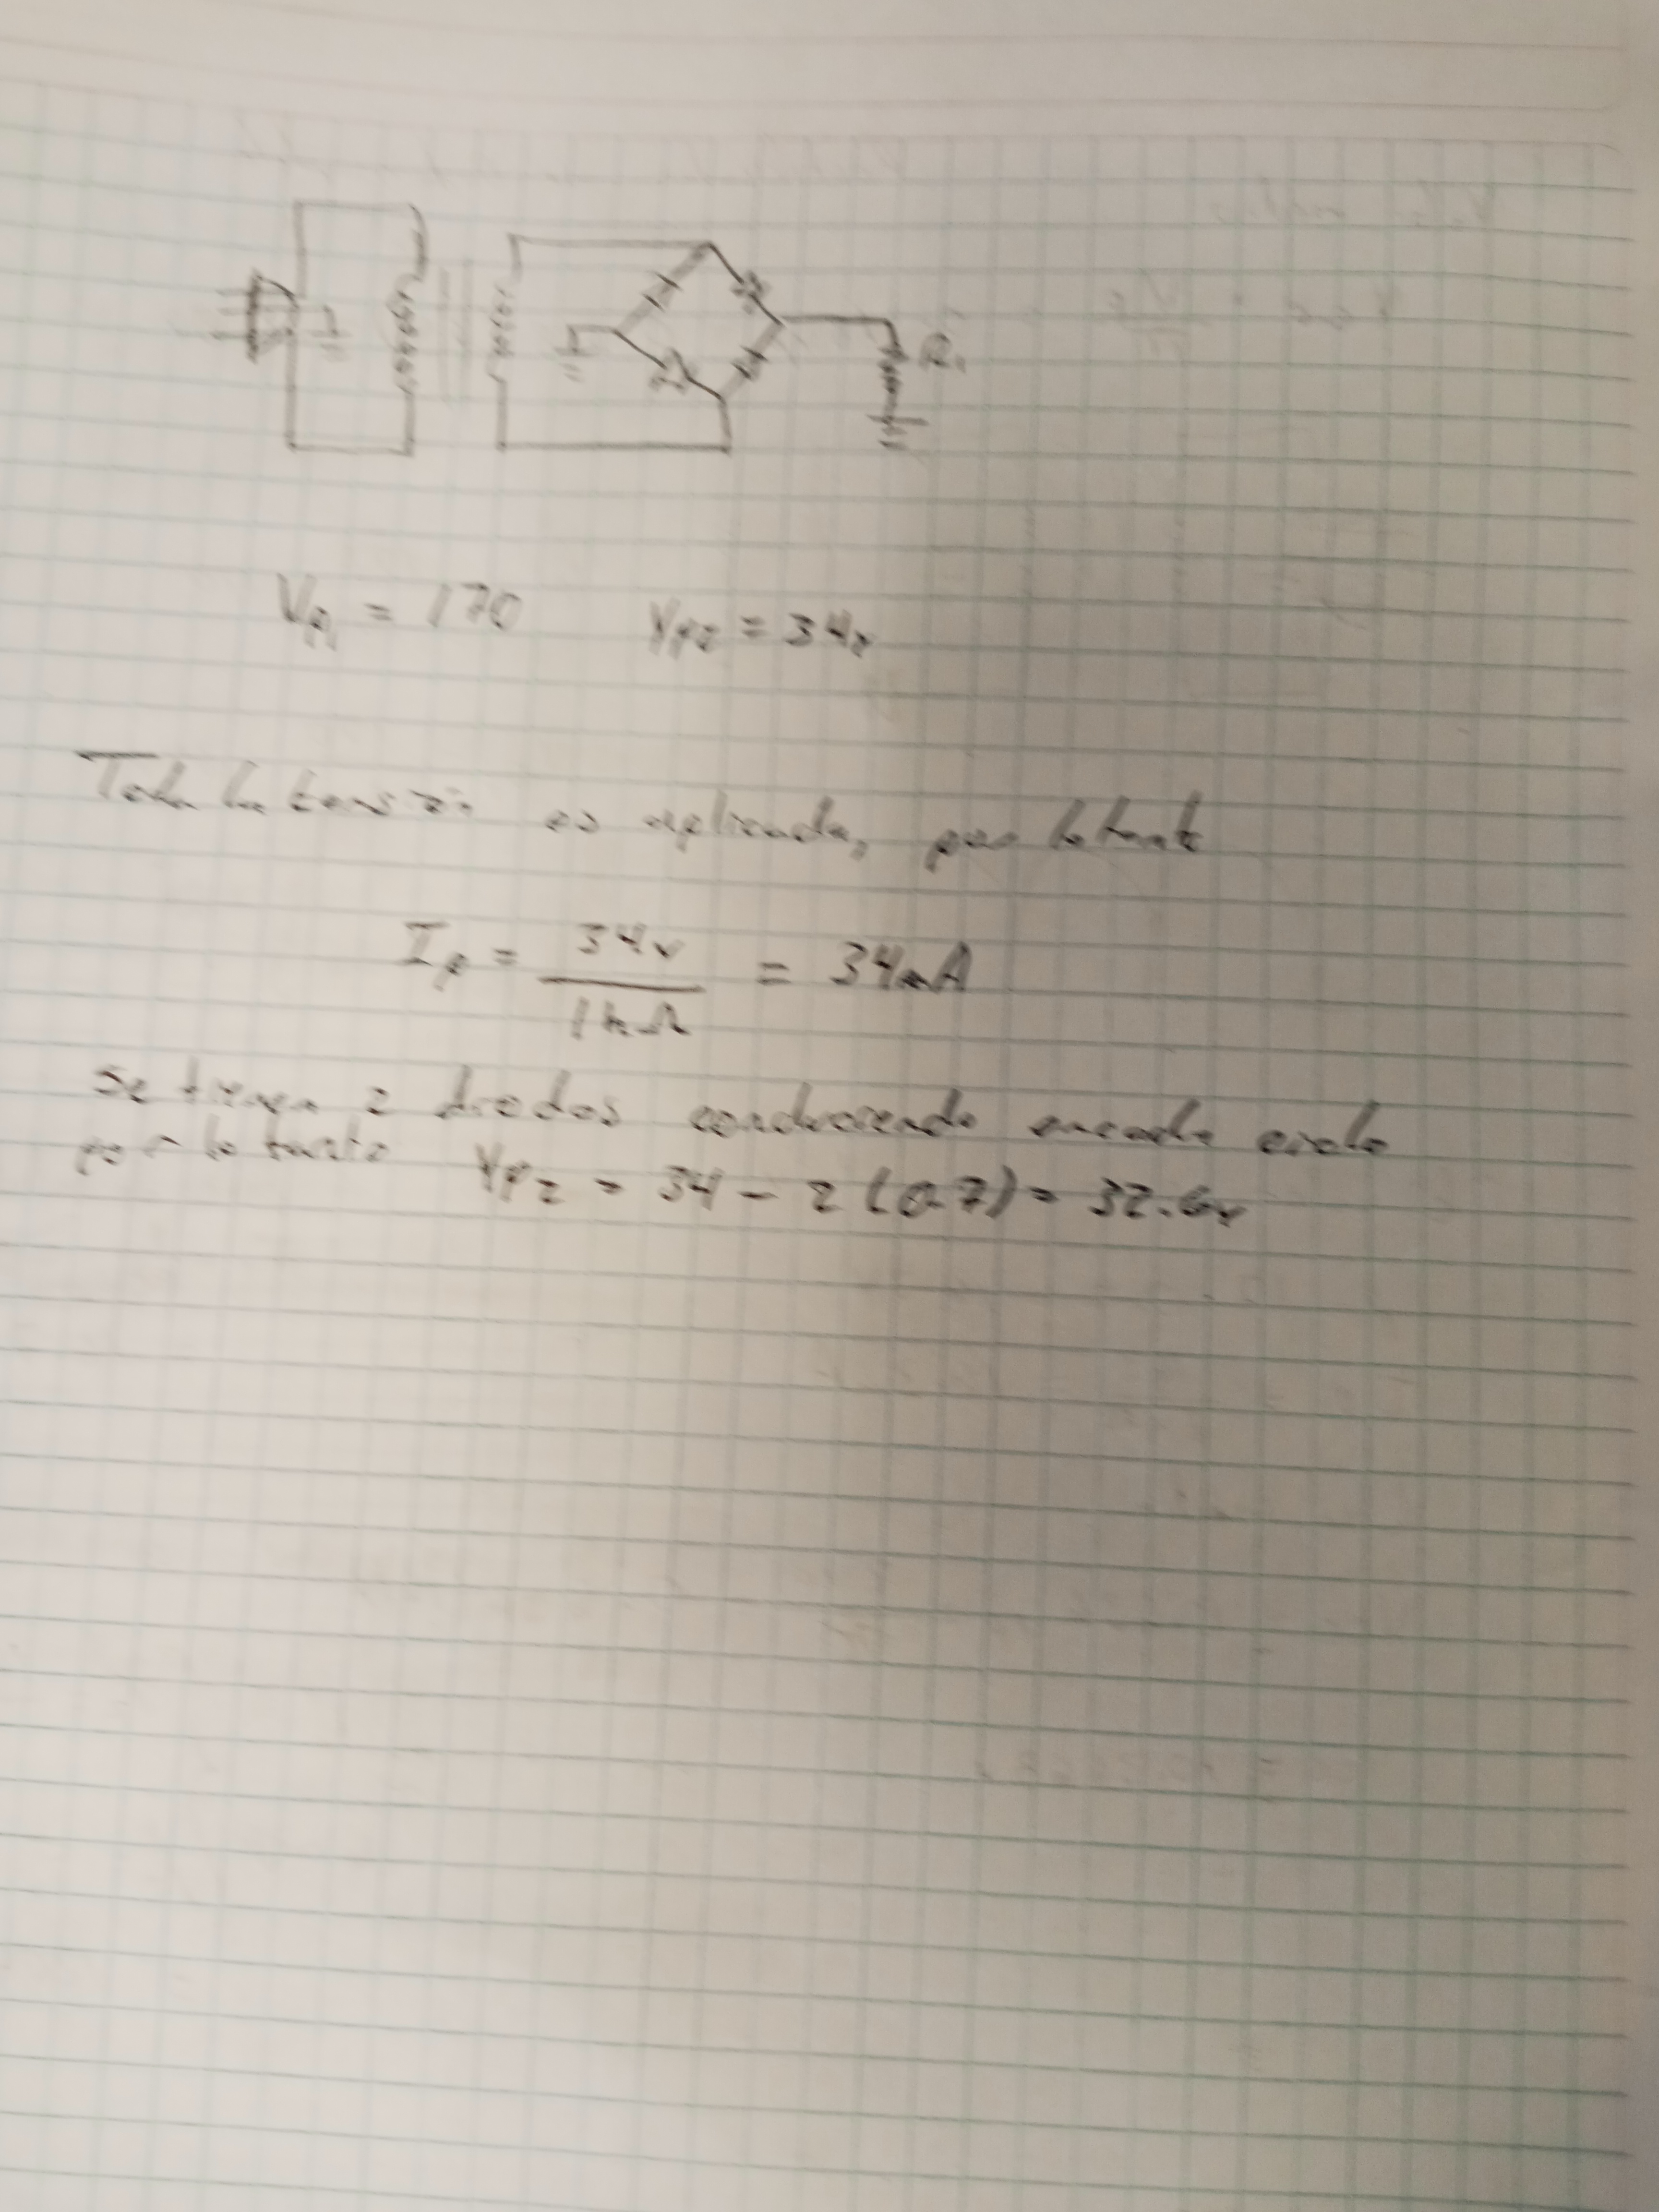 R1
Vp1 = 170 Vp2 = 34v
Toda la tensión es aplicada, por lo tanto
Ip = 34v / 1kΩ = 34mA
Se tienen 2 diodos conduciendo en cada ciclo
por lo tanto Vp2 = 34 - 2 (0.7) = 32.6v